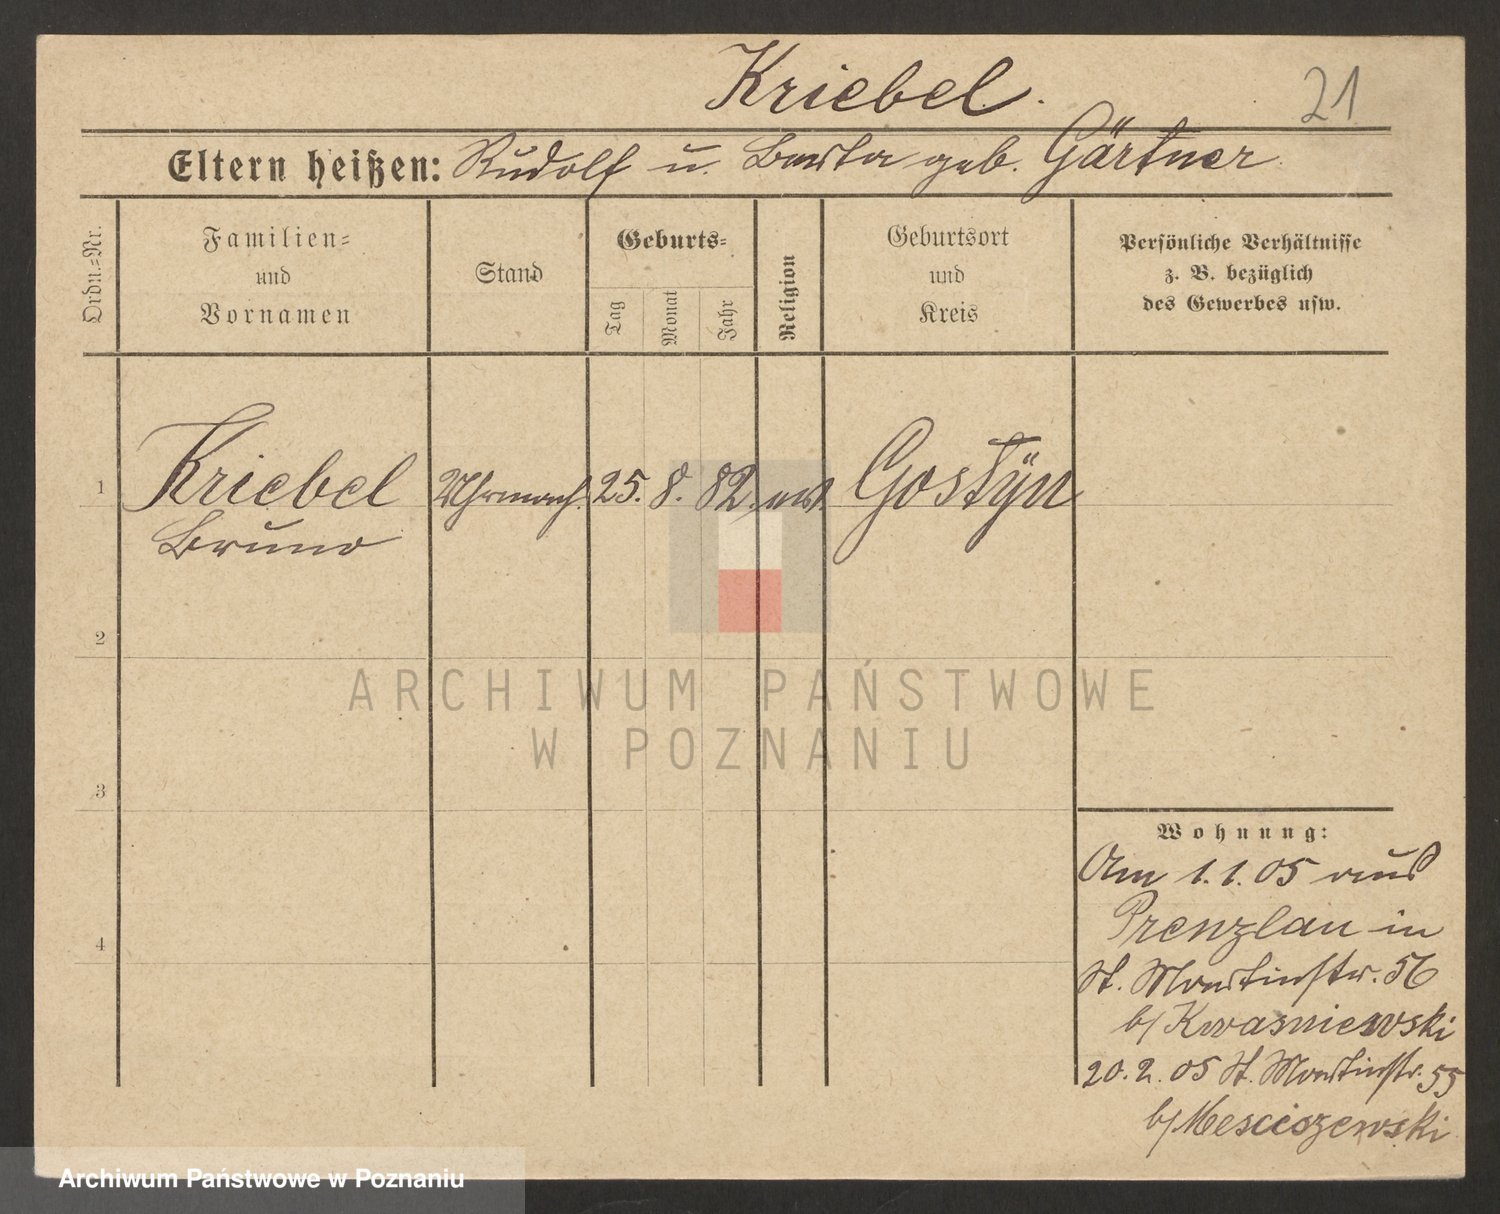 Kriebel.
21
Eltern heißen: Rudolf u. Berta geb. Gärtner.
Ordn.-Nr.
Familien-
und
Vornamen
Stand
Geburts-
Tag
Monat
Jahr
Religion
Geburtsort
und
Kreis
Persönliche Verhältnisse
z. B. bezüglich
des Gewerbes usw.
1 Kriebel Uhrmach. 25. 8. 82. ev. Gostyn
Bruno
2
3
4
ARCHIWUM PAŃSTWOWE
W POZNANIU
Wohnung:
Am 1.1.05 aus
Prenzlau in
St. Martinstr. 56
b/ Kwasniewski
20.2.05 St. Martinstr. 55
b/ Mesciszewski
Archiwum Państwowe w Poznaniu